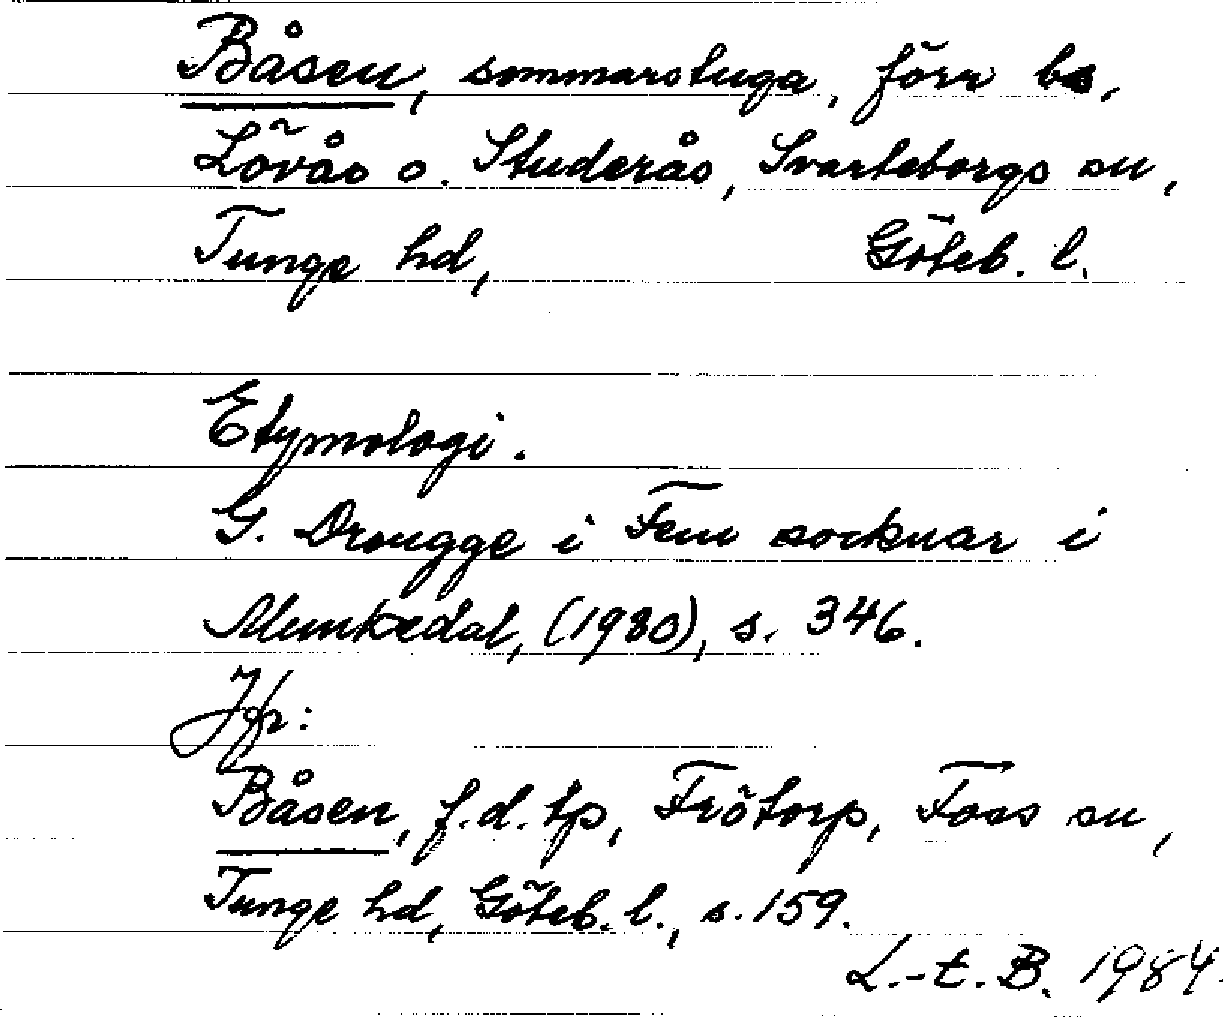 Båsen, sommarstuga, förr bs,
Lövås o. Studerås, Svarteborgs sn,
Tunge hd, Göteb. l.
Etymologi.
G. Drougge i Fem socknar i
Munkedal, (1980), s. 346.
Jfr:
Båsen, f.d. tp, Frötorp, Foss sn,
Tunge hd, Göteb. l., s. 159.
L.-E. B. 1984.